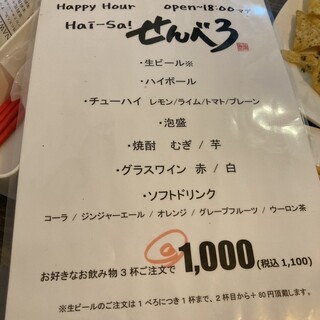 Happy Hour open~18:00まで
Haï-Sa! せんべろ
・生ビール※
・ハイボール
・チューハイ レモン/ライム/トマト/プレーン
・泡盛
・焼酎 むぎ / 芋
・グラスワイン 赤 / 白
・ソフトドリンク
コーラ / ジンジャーエール / オレンジ / グレープフルーツ / ウーロン茶
お好きなお飲み物3杯ご注文で 1,000 (税込1,100)
※生ビールのご注文は1べろにつき1杯まで、2杯目から+80円頂戴します。